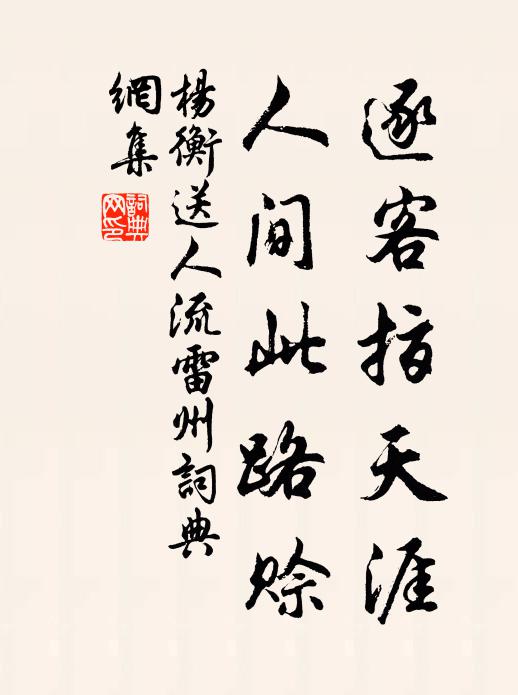 逐客指天涯
人间此路赊
楊衡送人流雷州詞典
網集
詞典
网印